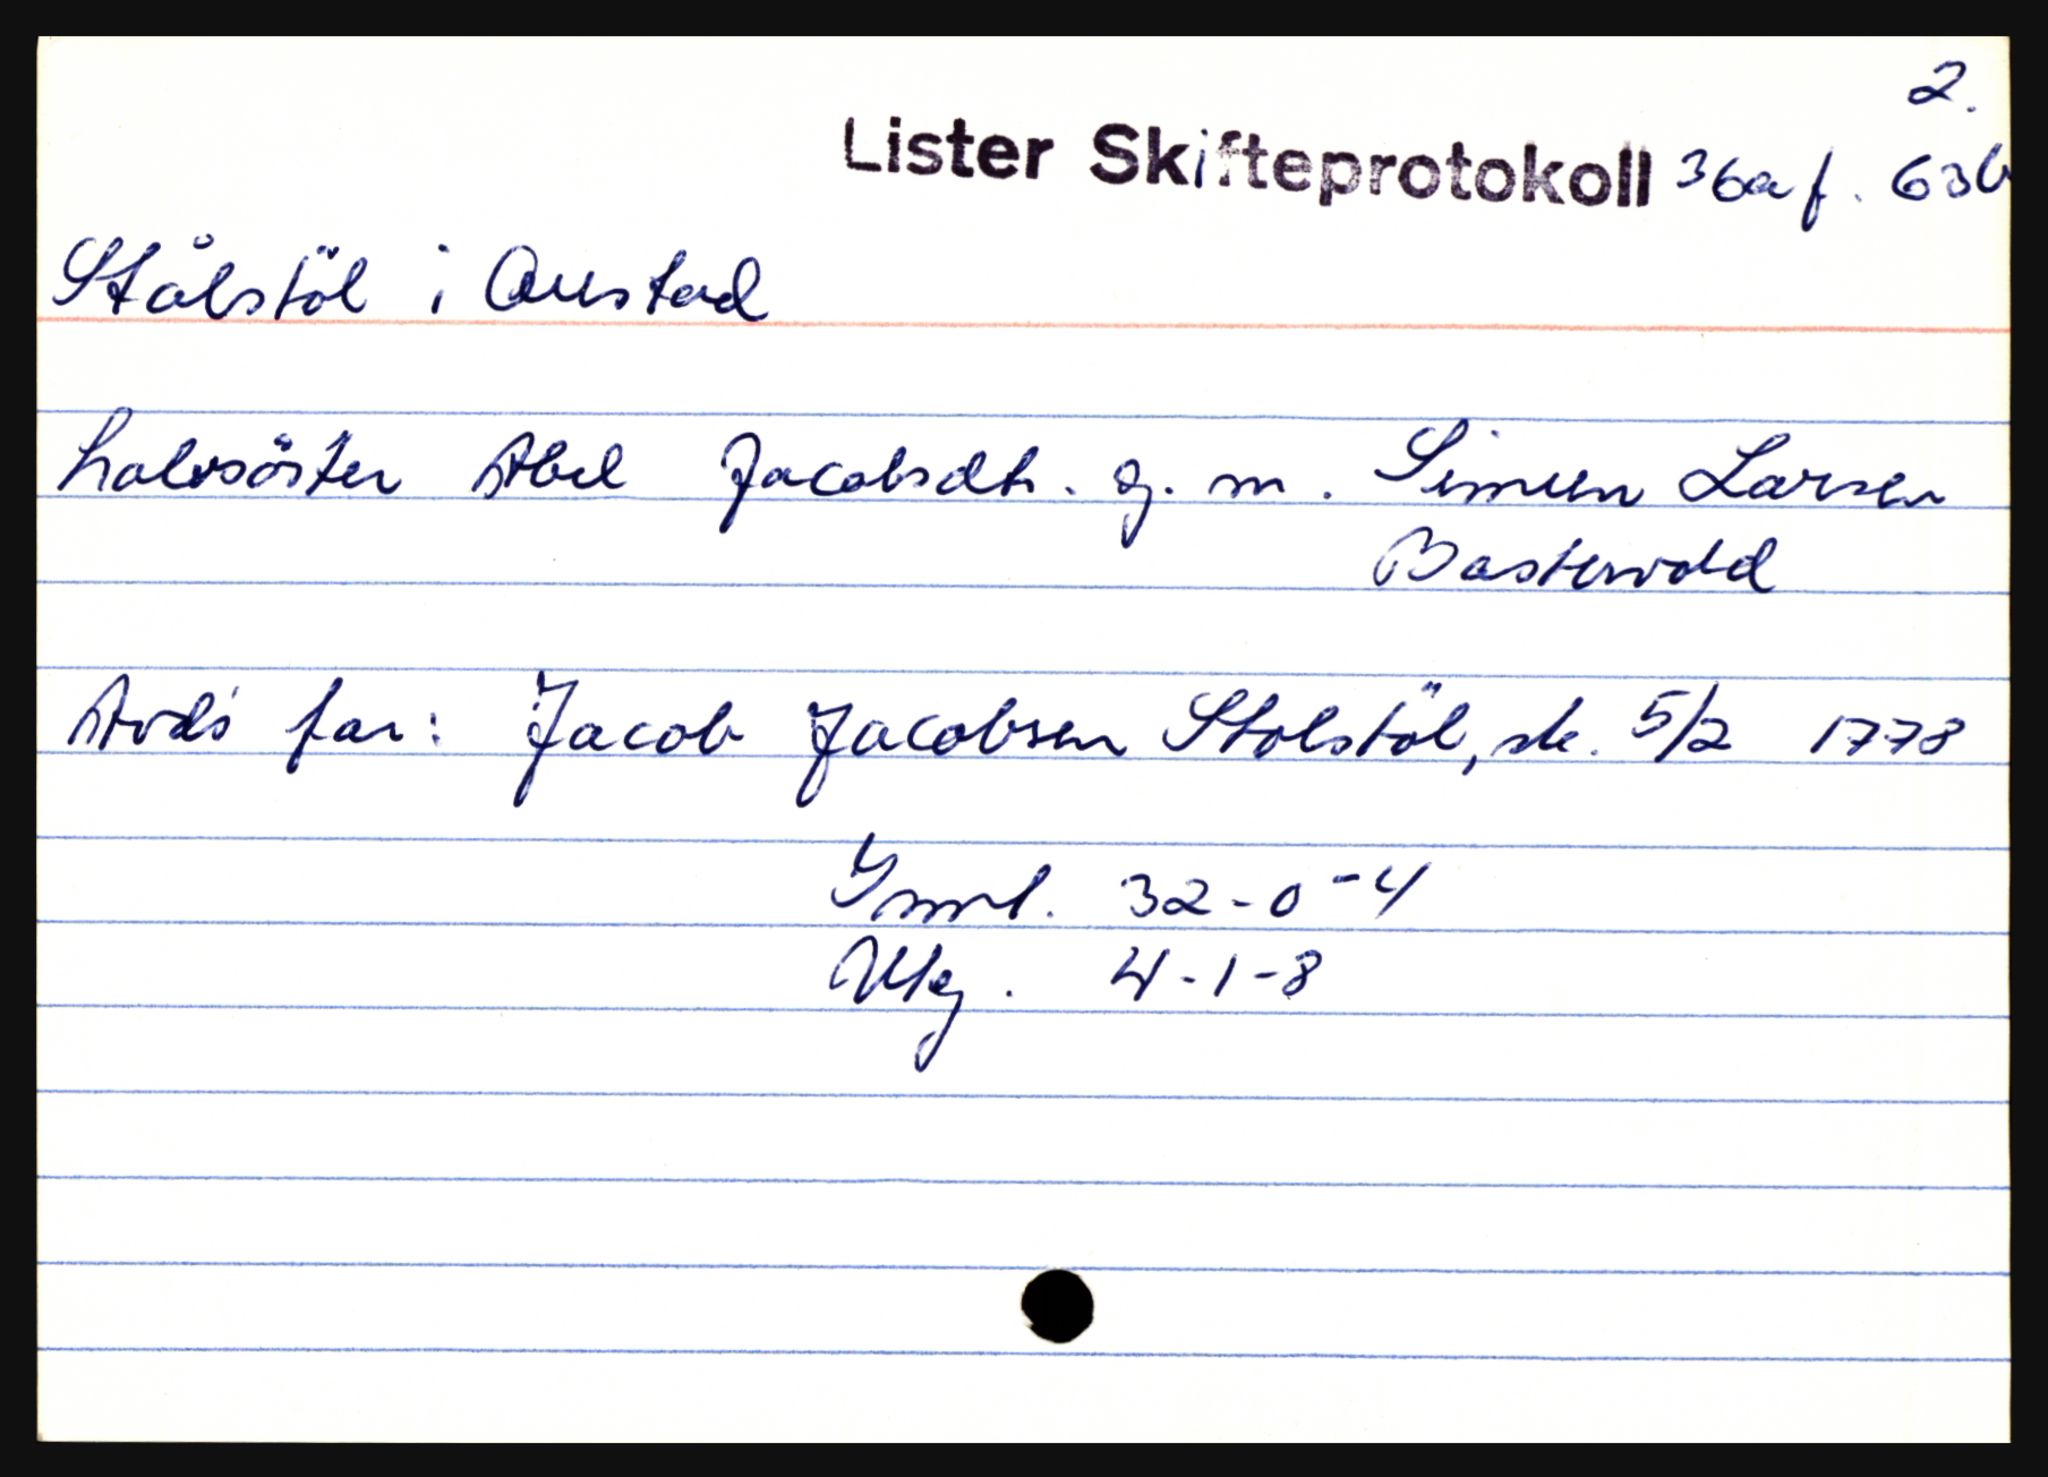 2.
Lister Skifteprotokoll 36a f. 63b
Stålstöl i Austad
halvsöster Abel Jacobsdt. g. m. Simen Larsen
Bastervold
Avds far: Jacob Jacobsen Stolstöl, sk. 5/2 1778
32-0-4
Utg. 4-1-8